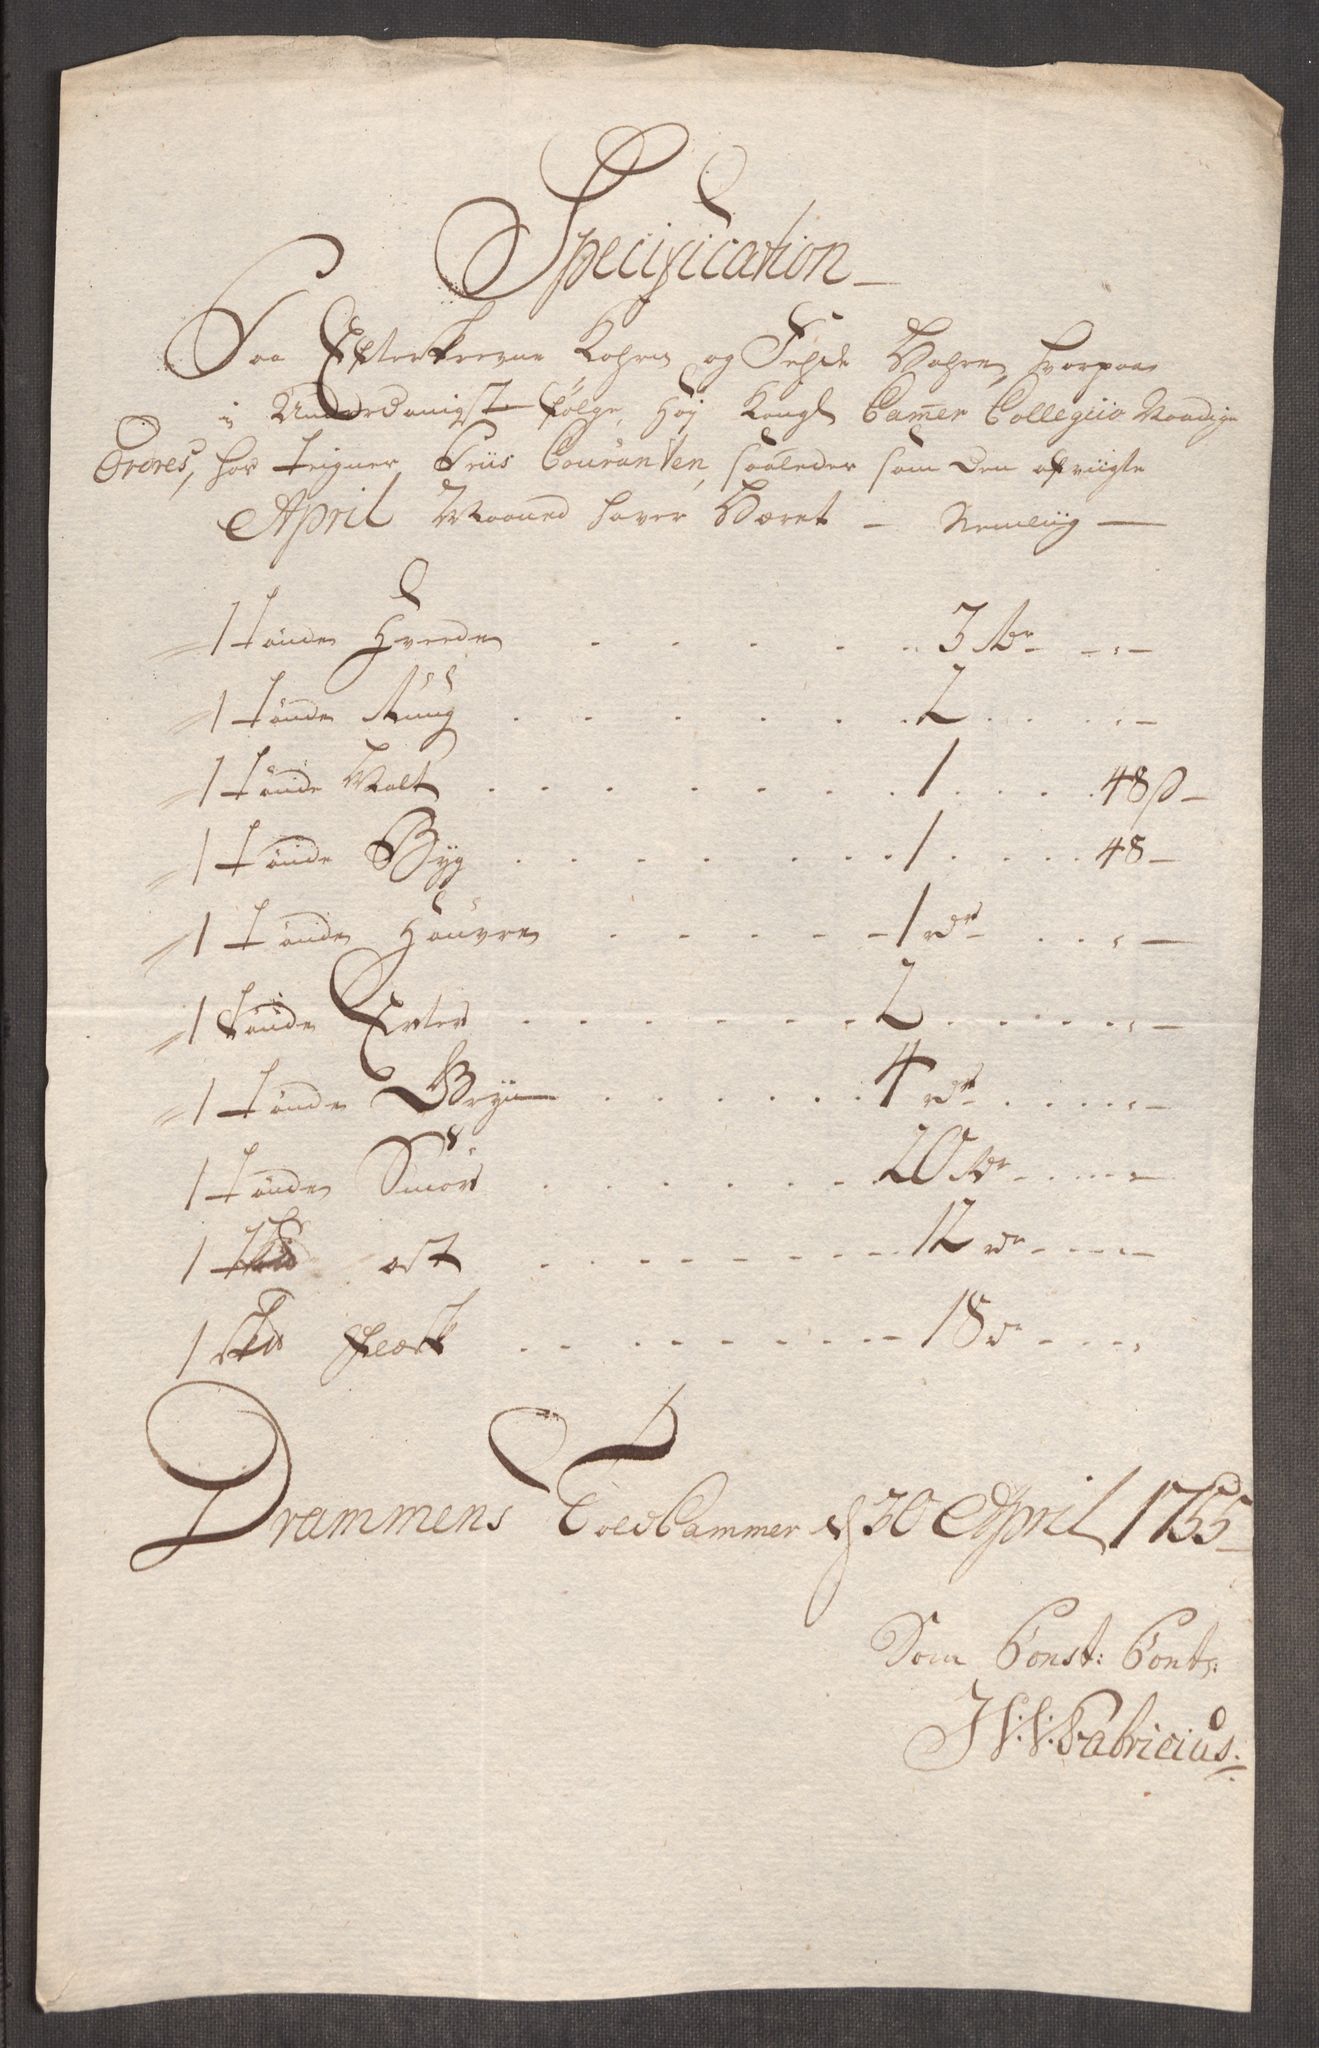 Specification
Paa Efterskrevne Kohrn og Fehde Vahre, hvorpaa
i Underdanigst følge, Høy Kongl Camer Collegiio Naadige
Ordres, hos teigner Priis Couranten, saaleder som den afviigte
April Maaned haver Været - Nemliig
1 tønde Hvede . . . . . 3 Rdr - " -
1 tønde Ruug . . . . . . 2 . . . " -
1 tønde Malt . . . . . . . 1 . . . . 48 ß -
1 tønde Byg . . . . . . . . 1 . . . . 48 -
1 tønde Hauvre . . . . . - 1 rdr . . . " -
1 tønde Erter . . . . . . . 2 . . . . . " -
1 tønde Gryn . . . . . . 4 rdr . . . . " -
1 tønde Smør . . . . . . 20 Rdr - . . . -
1 ost . . . . . . . - 12 rdr - - - -
1 Skd Flæsk . . . . . . . - 18 dr - - - "
Drammens Toldcammer d 30 April 1755
Som Const: Cont:
J: V: Fabricius: